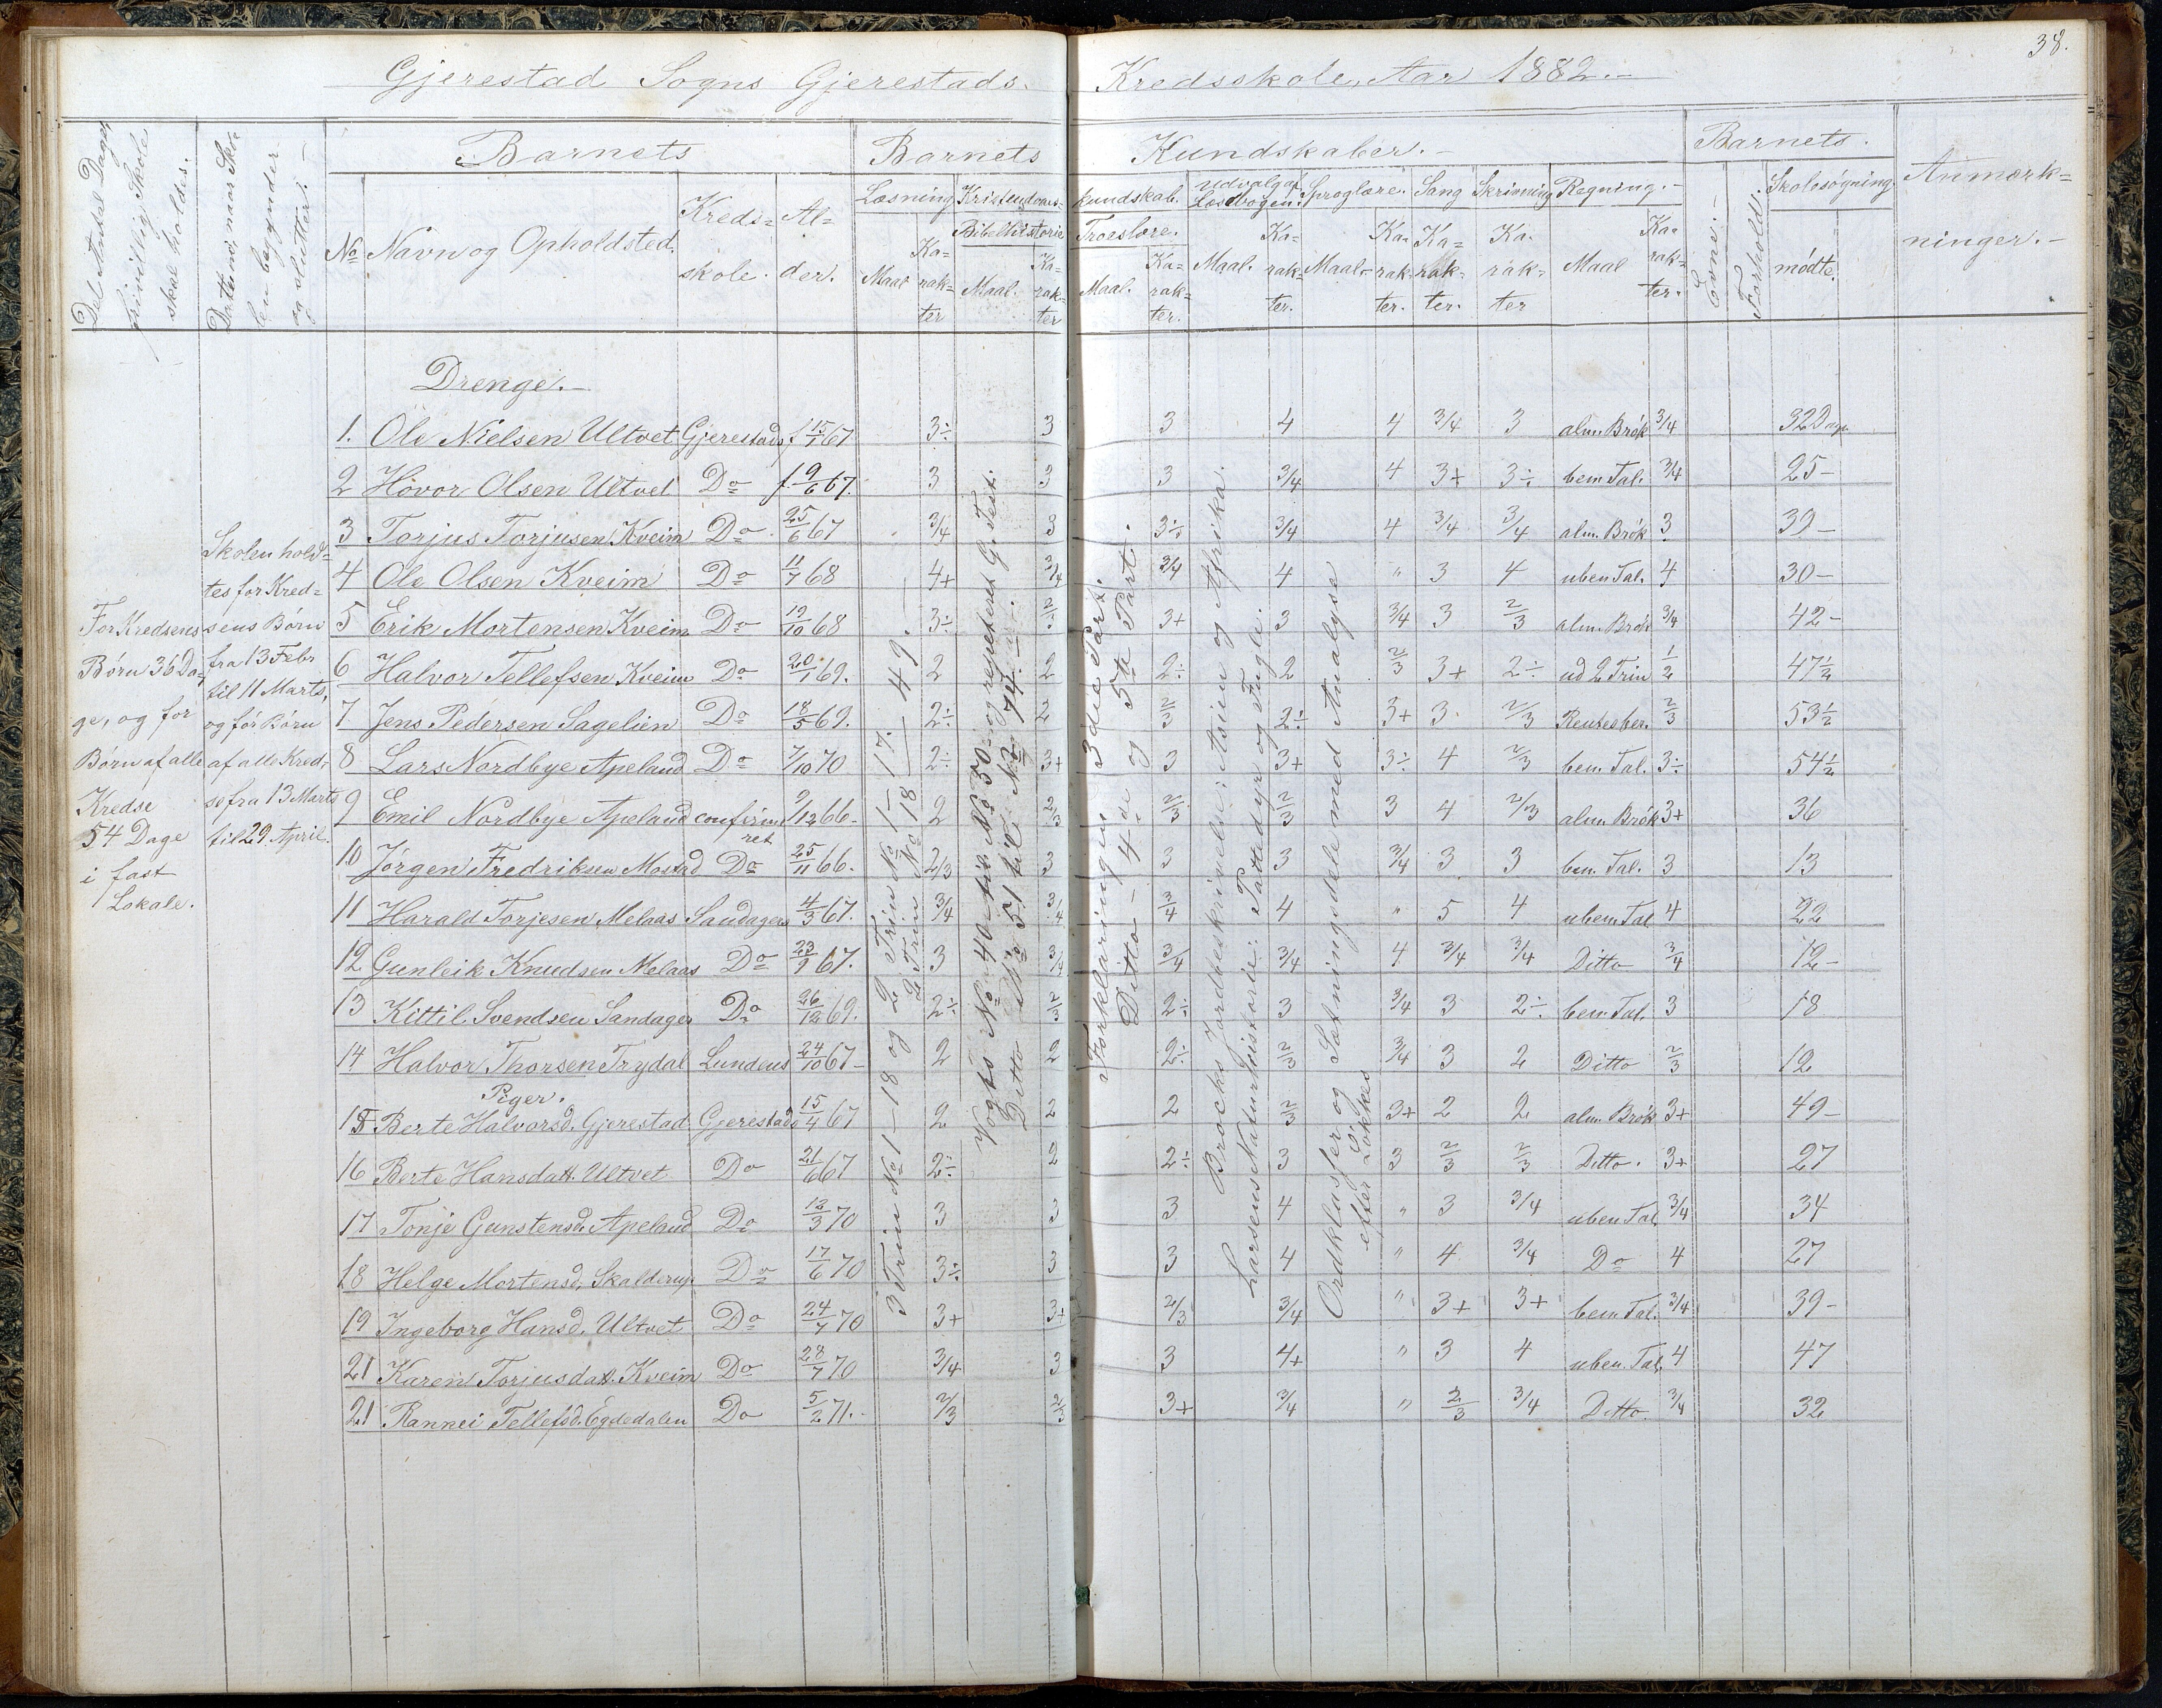 38.
Gjerestad Sogns Gjerestads Kredsskole, Aar 1882.
Det Antal Dage, frivillig Skole skal holdes.
Datoerne, naar Skolen begynder og slutter.
Barnets
Barnets Kundskaber.
Barnets
Anmærkninger.
No Navn og Opholdsted. Kredsskole. Alder.
Læsning Kristendomskundskab. Udvalg af Læsebogen. Sproglære. Sang Skrivning Regning.
Bibelhistorie Troeslære.
Maal Karakter Maal. Karakter Maal. Karakter. Maal. Karakter. Maal. Karakter. Karakter. Karakter Maal Karakter.
Evne. Forhold. Skolesøgning. mødte.
For Kredsens
Børn 36 Da-
ge, og for
Børn af alle
Kredse
54 Dage
i fast
Lokale.
Skolen hold-
tes for Kred-
sens Børn
fra 13 Febr
til 11 Marts,
og for Børn
af alle Kred-
se fra 13 Marts
til 29 April.
3 Trin No 1 – 18 og 2 Trin No 1 – 17.
2 Trin No 18 – 49.
Vogts No 40 til No 50 og repeteret G. Test.
Ditto No 51 til No 74
Forklaringen 3die Part.
Ditto – 4de og 5te Part.
Brocks Jordbeskrivelse: Asien og Afrika.
Larsens Naturhistorie: Pattedyr og Fugle.
Ordklasser og Sætningsdele med Analyse
efter Løkkes
Drenge.
1. Ole Nielsen Ultvet Gjerestads f 15/1 67 3÷ 3 3 4 4 3/4 3 alm. Brøk 3/4 32 Dage
2 Hovor Olsen Ultvet Do f. 9/6 67. 3 3 3 3/4 4 3+ 3÷ bem Tal. 3/4 25 –
3 Torjus Torjusen Kveim Do 25/6 67 3/4 3 3÷ 3/4 4 3/4 3/4 alm. Brøk 3 39 –
4 Ole Olsen Kveim Do 11/7 68 4+ 3/4 3/4 4 " 3 4 uben Tal. 4 30 –
5 Erik Mortensen Kveim Do 19/10 68 3÷ 2/3 3+ 3 3/4 3 2/3 alm. Brøk 3/4 42 –
6 Halvor Tellefsen Kveim Do 20/1 69. 2 2 2÷ 2 2/3 3+ 2÷ ud 2 Trin 1/2 47 1/2
7 Jens Pedersen Sagelien Do 18/5 69. 2÷ 2 2/3 2÷ 3+ 3 2/3 Rentesber. 2/3 53 1/2
8 Lars Nordbye Apeland Do 7/10 70 2÷ 3+ 3 3+ 3÷ 4 2/3 bem. Tal. 3÷ 54 1/2
9 Emil Nordbye Apeland confirmeret 9/12 66 2 2/3 2/3 2/3 3 4 2/3 alm. Brøk 3+ 36
10 Jørgen Fredriksen Mostad Do 25/11 66. 2/3 3 3 3 3/4 3 3 bem. Tal. 3 13
11 Harald Torjesen Melaas Sandagers 4/3 67. 3/4 3/4 3/4 4 " 5 4 uben Tal 4 22
12 Gunleik Knudsen Melaas Do 23/9 67. 3 3/4 3/4 3/4 4 3/4 3/4 Ditto 3/4 12 –
13 Kittil Svendsen Sandager Do 26/12 69. 2÷ 2/3 2÷ 3 3/4 3 2÷ bem. Tal. 3 18
14 Halvor Thorsen Trydal Lundens 24/10 67 2 2 2÷ 2/3 3/4 3 2 Ditto 2/3 12
Piger.
15 Berte Halvorsd. Gjerestad Gjerestads 15/4 67 2 2 2 2/3 3+ 2 2 alm. Brøk 3+ 49 –
16 Berte Hansdatt. Ultvet Do 21/6 67 2÷ 2 2÷ 3 3 2/3 2/3 Ditto. 3+ 27
17 Tonje Gunstensd. Apeland Do 12/3 70 3 3 3 4 " 3 3/4 uben Tal, 3/4 34
18 Helge Mortensd. Skalderup Do 17/6 70 3÷ 3 3 4 " 4 3/4 Do 4 27
19 Ingeborg Hansd. Ultvet Do 24/7 70 3+ 3+ 2/3 3/4 " 3+ 3+ bem. Tal. 3/4 39 –
21 Karen Torjusdat. Kveim Do 28/7 70 3/4 3 3 4+ " 3 4 uben. Tal, 4 47
21 Rannei Tellefsd. Egdedalen Do 5/2 71. 2/3 2/3 3+ 3/4 " 2/3 3/4 Ditto. 3/4 32